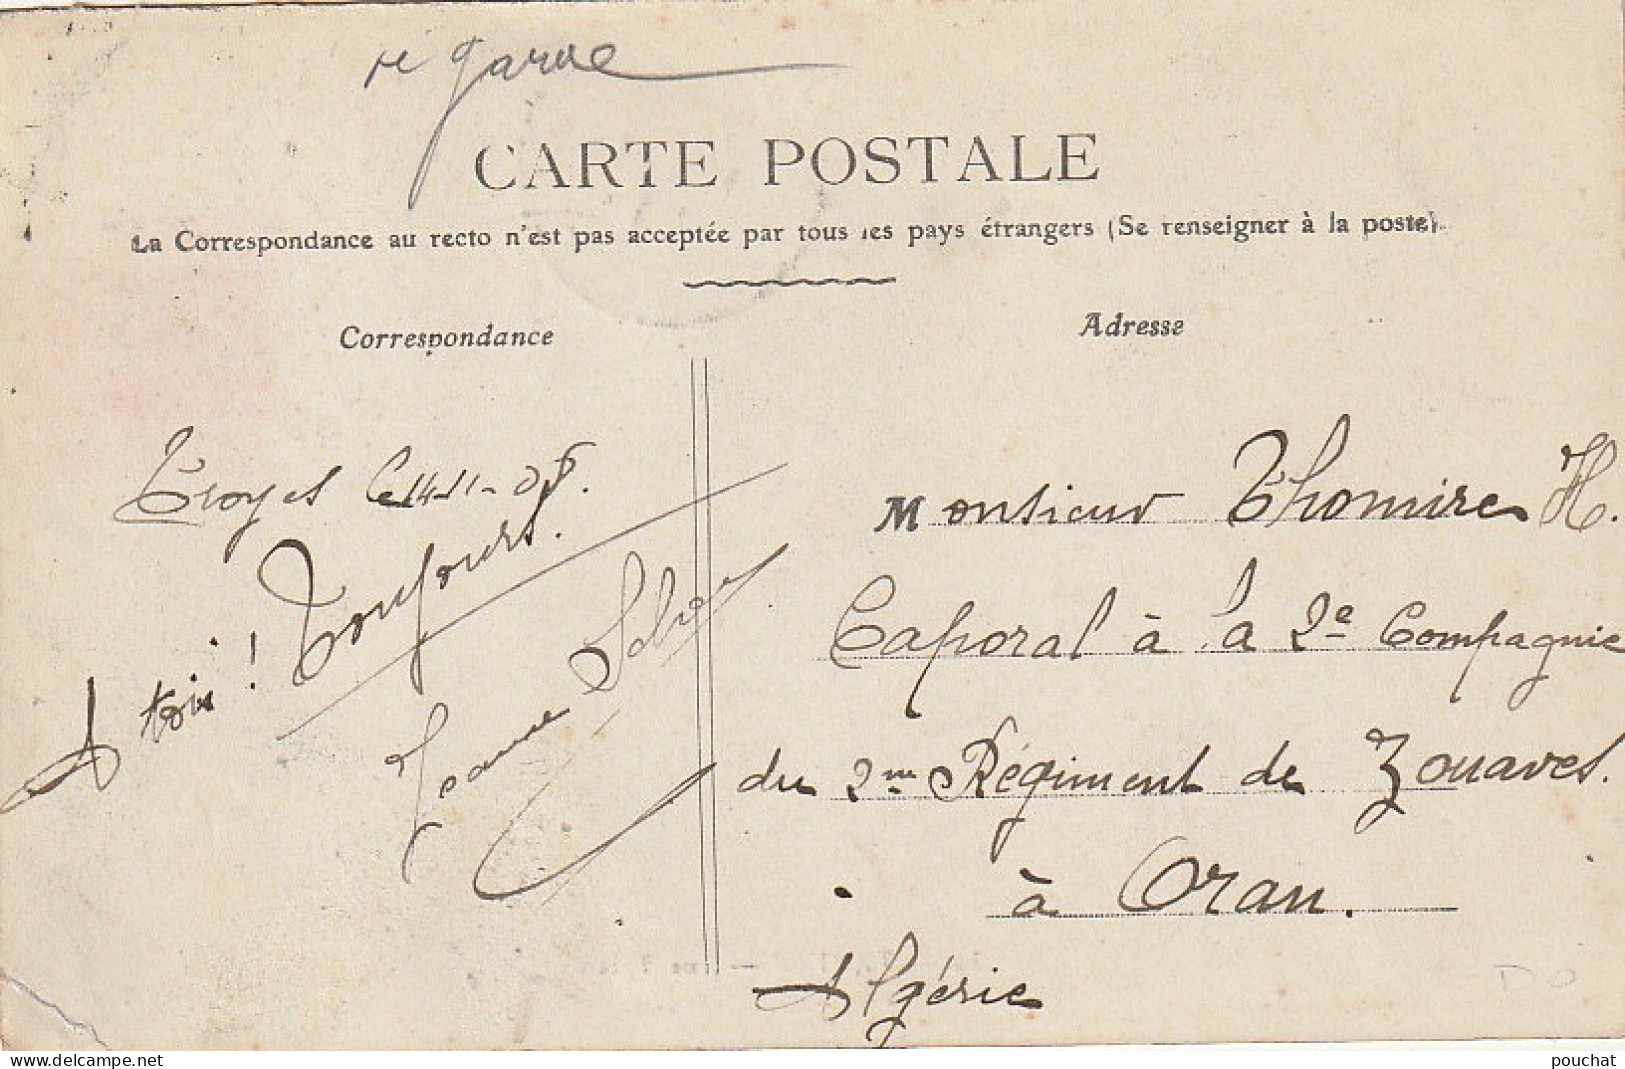 garde
CARTE POSTALE
La Correspondance au recto n'est pas acceptée par tous les pays étrangers (Se renseigner à la poste).
Correspondance
Troyes le
A toi ! Toujours.
Jeanne
Adresse
Monsieur Thomire H.
Caporal à la 2e Compagnie
du 2me Régiment de Zouaves.
à Oran.
Algérie
www.delcampe.net
pouchat